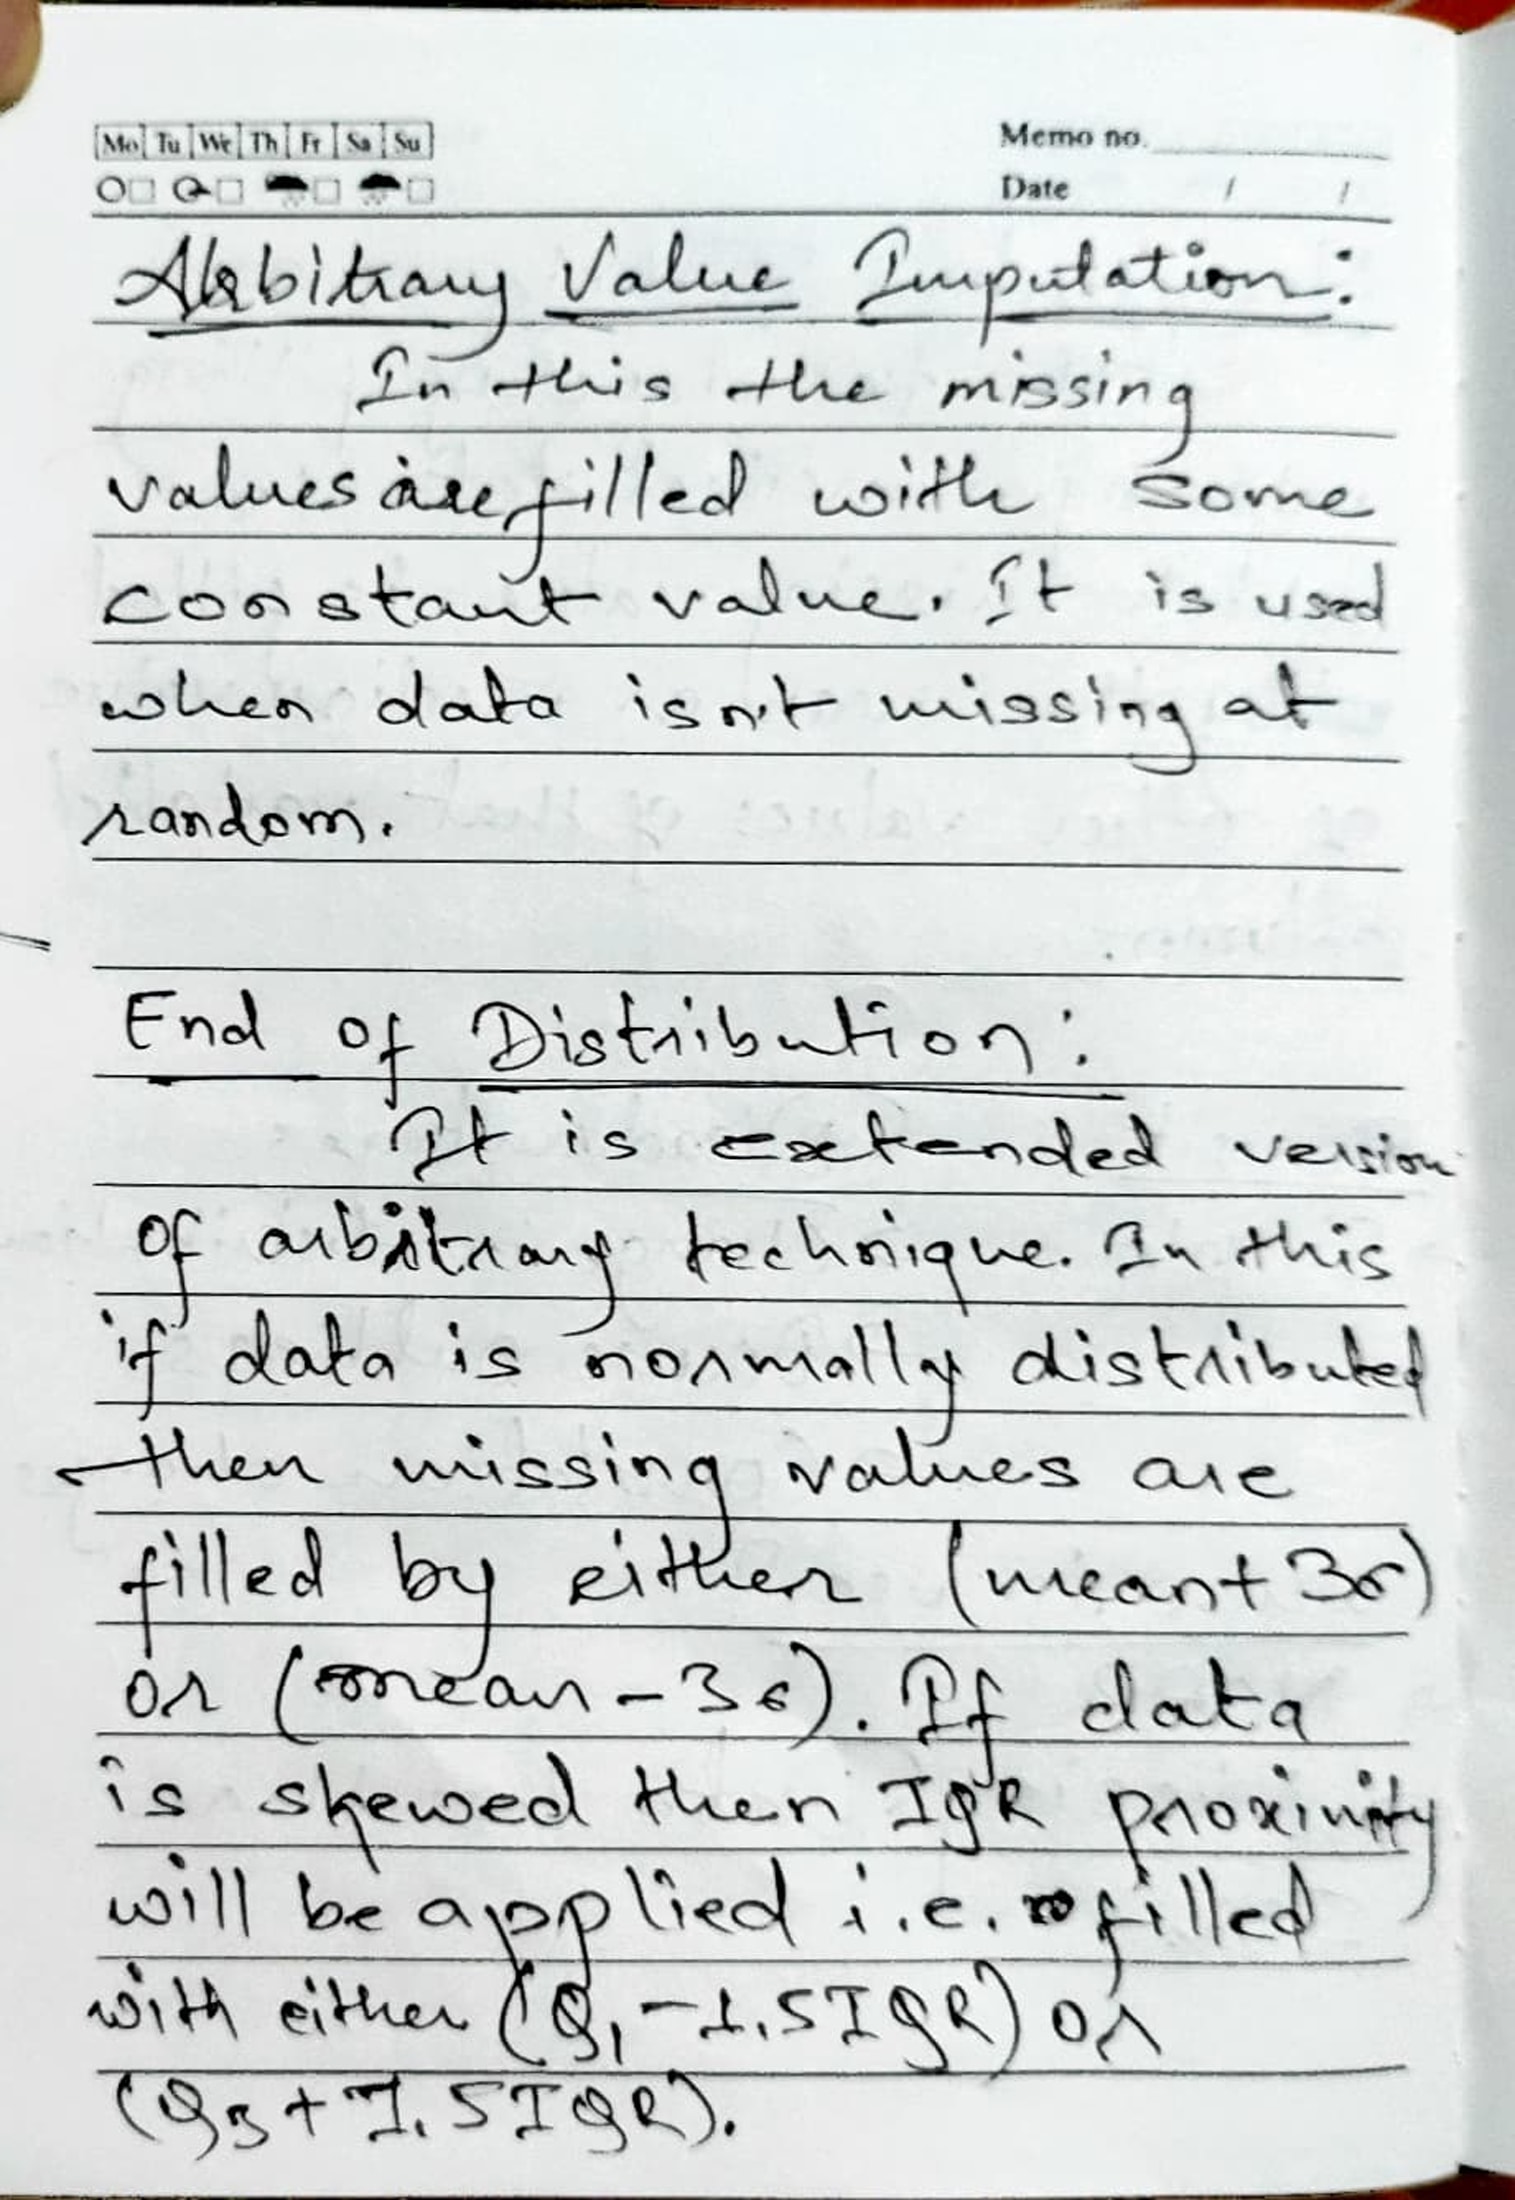 Mo Tu We Th Fr Sa Su
Memo no.
Date / /
Arbitrary Value Imputation:
In this the missing
values are filled with some
constant value. It is used
when data isn't missing at
random.
End of Distribution:
It is extended version
of arbitrary technique. In this
if data is normally distributed
then missing values are
filled by either (mean + 3σ)
or (mean - 3σ). If data
is skewed then IQR proximity
will be applied i.e. filled
with either (Q₁ - 1.5IQR) or
(Q₃ + 1.5IQR).